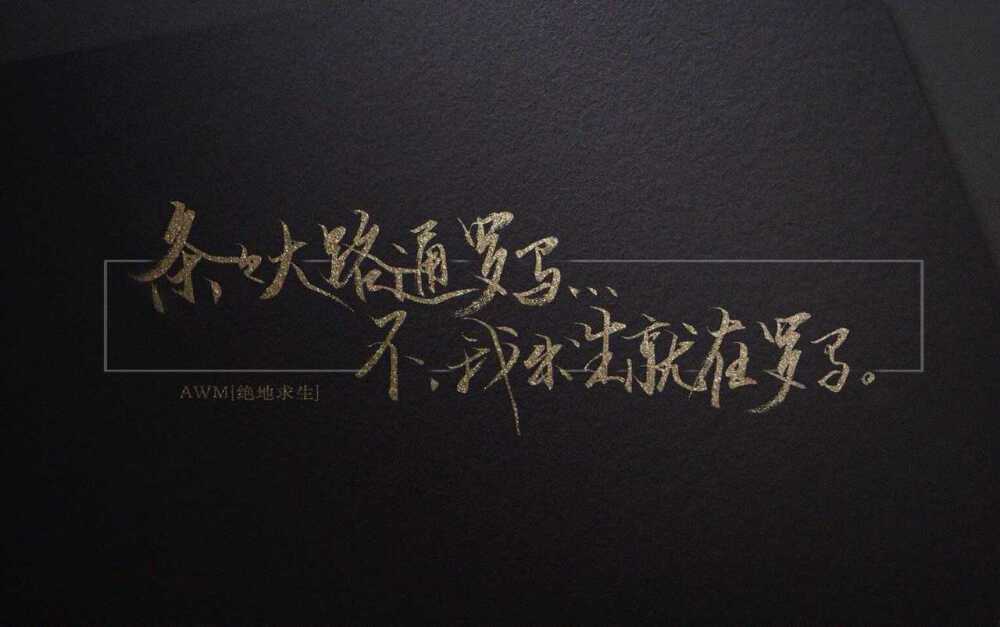 条々大路通罗马...
不,我出生就在罗马。
AWM[绝地求生]